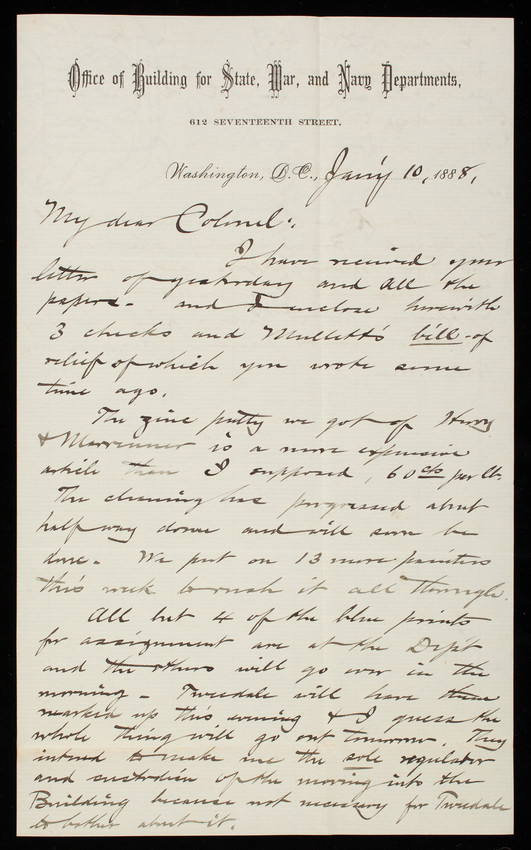 Office of Building for State, War, and Navy Departments,
612 SEVENTEENTH STREET.
Washington, D.C., Jan'y 10, 1888,
My dear Colonel:,
I have received your
letter of yesterday and all the
papers - and I enclose herewith
3 checks and Mullett's bill of
relief of which you wrote some
time ago.
The zinc putty we got of Harvey
& is a more expensive
article than I supposed, 60 cts per lb.
The cleaning has progressed about
half way down and will soon be
done - We put on 13 more painters
this week to rush it all through.
All but 4 of the blue prints
for assignment are at the Dep't
and the others will go over in the
morning - Tweedale will have them
marked up this evening & I guess the
whole thing will go out tomorrow. They
intend to make me the sole regulator
and custodian of the moving into the
Building because not necessary for Tweedale
to bother about it.